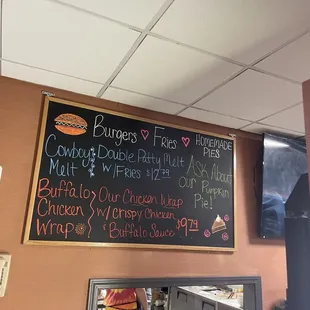 Burgers ♥ Fries ♥
Cowboy Melt
Double Patty Melt
w/ Fries $12.79
Buffalo Chicken Wrap
Our Chicken Wrap
w/ crispy Chicken,
Buffalo Sauce $9.79
HOMEMADE
PIES
Ask About
our Pumpkin
Pie!